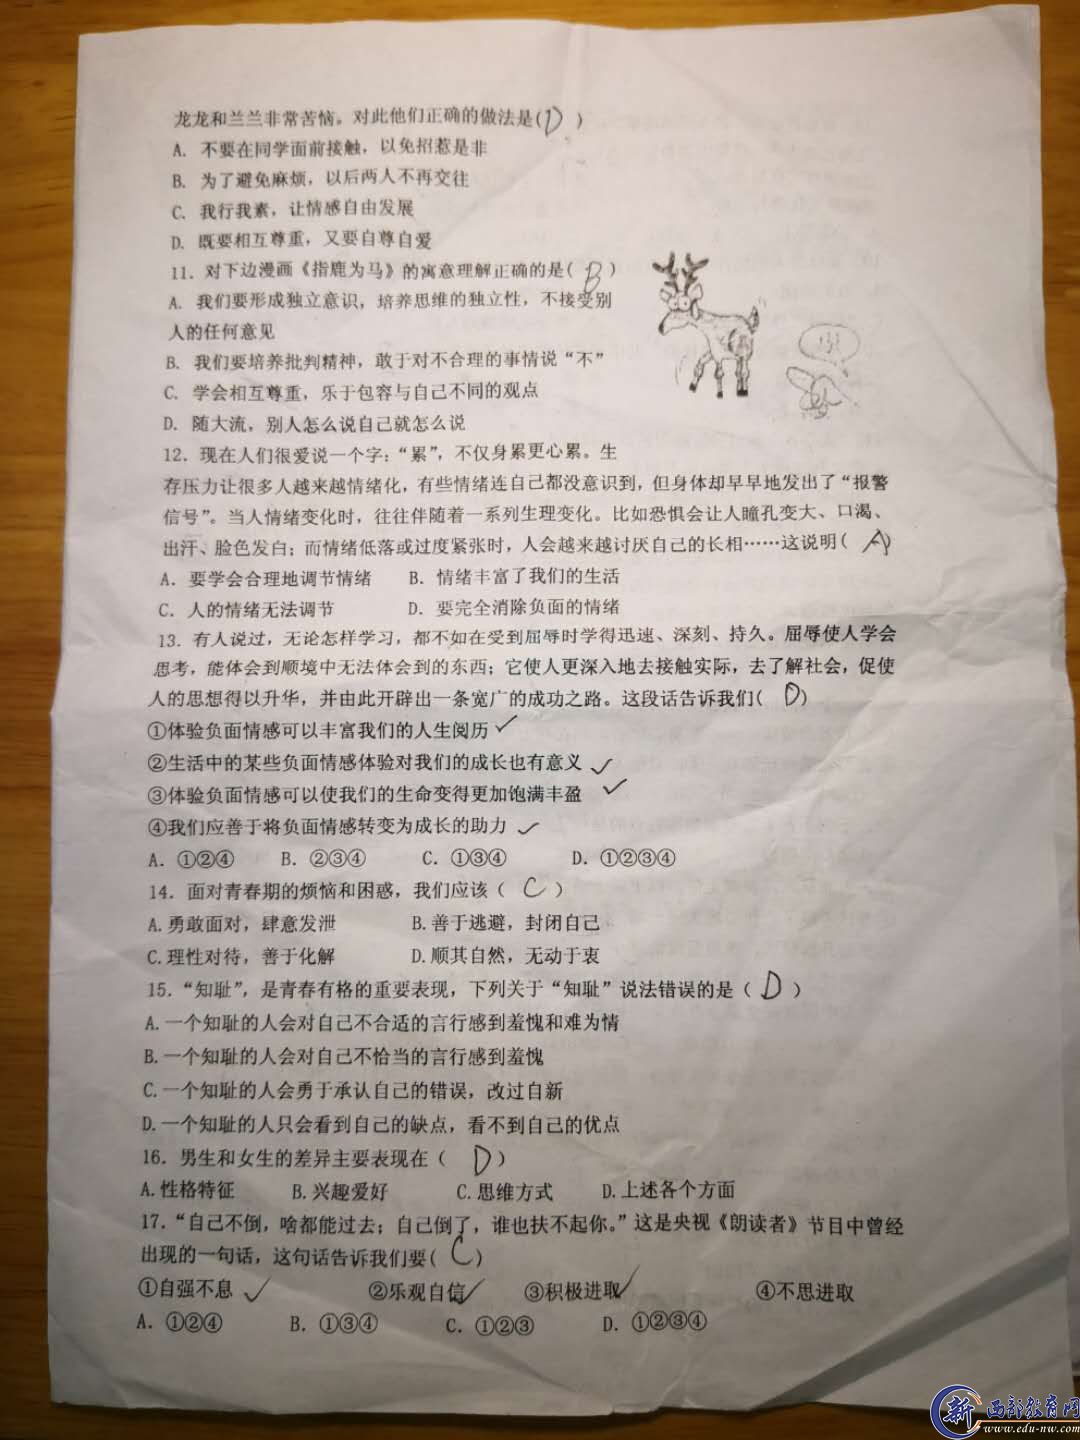 龙龙和兰兰非常苦恼。对此他们正确的做法是(D )
A. 不要在同学面前接触，以免招惹是非
B. 为了避免麻烦，以后两人不再交往
C. 我行我素，让情感自由发展
D. 既要相互尊重，又要自尊自爱
11. 对下边漫画《指鹿为马》的寓意理解正确的是( B )
A. 我们要形成独立意识，培养思维的独立性，不接受别
人的任何意见
B. 我们要培养批判精神，敢于对不合理的事情说“不”
C. 学会相互尊重，乐于包容与自己不同的观点
D. 随大流，别人怎么说自己就怎么说
12. 现在人们很爱说一个字：“累”，不仅身累更心累。生
存压力让很多人越来越情绪化，有些情绪连自己都没意识到，但身体却早早地发出了“报警
信号”。当人情绪变化时，往往伴随着一系列生理变化。比如恐惧会让人瞳孔变大、口渴、
出汗、脸色发白；而情绪低落或过度紧张时，人会越来越讨厌自己的长相……这说明( A )
A. 要学会合理地调节情绪 B. 情绪丰富了我们的生活
C. 人的情绪无法调节 D. 要完全消除负面的情绪
13. 有人说过，无论怎样学习，都不如在受到屈辱时学得迅速、深刻、持久。屈辱使人学会
思考，能体会到顺境中无法体会到的东西；它使人更深入地去接触实际，去了解社会，促使
人的思想得以升华，并由此开辟出一条宽广的成功之路。这段话告诉我们( D )
①体验负面情感可以丰富我们的人生阅历 ✓
②生活中的某些负面情感体验对我们的成长也有意义 ✓
③体验负面情感可以使我们的生命变得更加饱满丰盈 ✓
④我们应善于将负面情感转变为成长的助力 ✓
A. ①②④ B. ②③④ C. ①③④ D. ①②③④
14. 面对青春期的烦恼和困惑，我们应该（ C ）
A.勇敢面对，肆意发泄 B.善于逃避，封闭自己
C.理性对待，善于化解 D.顺其自然，无动于衷
15. “知耻”，是青春有格的重要表现，下列关于“知耻”说法错误的是（ D ）
A.一个知耻的人会对自己不合适的言行感到羞愧和难为情
B.一个知耻的人会对自己不恰当的言行感到羞愧
C.一个知耻的人会勇于承认自己的错误，改过自新
D.一个知耻的人只会看到自己的缺点，看不到自己的优点
16. 男生和女生的差异主要表现在（ D ）
A.性格特征 B.兴趣爱好 C.思维方式 D.上述各个方面
17. “自己不倒，啥都能过去；自己倒了，谁也扶不起你。”这是央视《朗读者》节目中曾经
出现的一句话，这句话告诉我们要( C )
①自强不息 ✓ ②乐观自信 ✓ ③积极进取 ✓ ④不思进取
A. ①②④ B. ①③④ C. ①②③ D. ①②③④
新 西部教育网
www.edu-nw.com